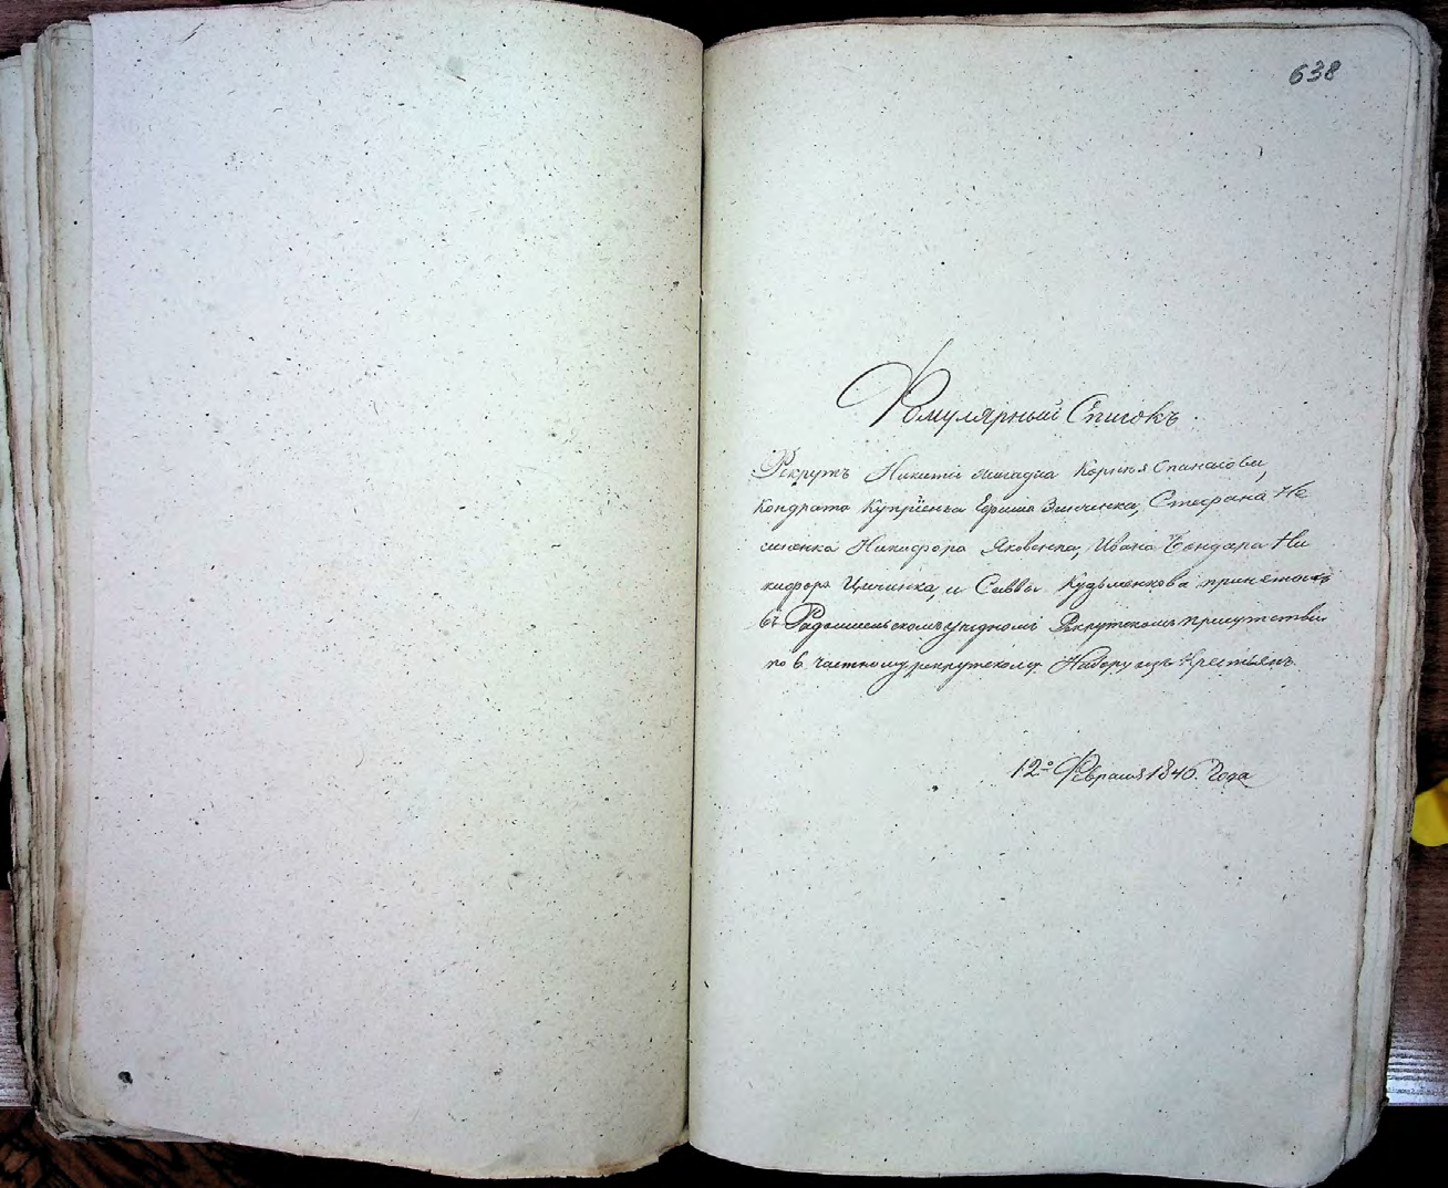 638
Фомулярный Списокъ
Рекрутъ Никиты Корнья Спанасова,
Кондрата Куприенка Ефима Зинченка, Стефана Не
Никифора Яковенка, Ивана Бондара Ни
кифора и Саввы Кузьменкова принятыхъ
въ Радомысльскомъ уездномъ Рекрутскомъ присутствіи
по 6. частному рекрутскому Набору изъ Крестьянъ.
12го Февраля 1846. Года